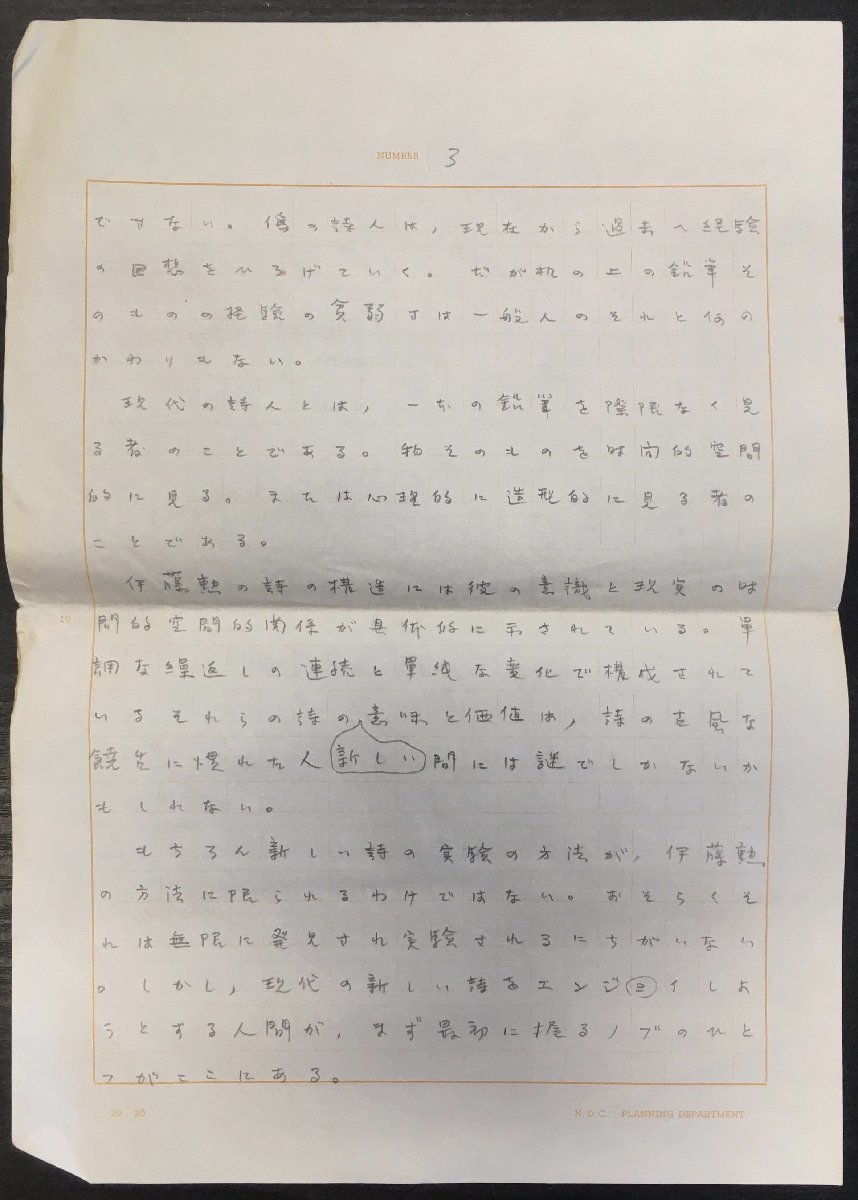 NUMBER 3
できない。偽の詩人は，現在から過去へ経験
の回想をひろげていく。だが机の上の鉛筆そ
のものの経験の貧弱さは一般人のそれと何の
かわりもない。
現代の詩人とは，一本の鉛筆を際限なく見
る者のことである。物そのものを时间的空間
的に見る。または心理的に造型的に見る者の
ことである。
伊藤勲の詩の構造には彼の意識と現実の时
間的空間的関係が具術的に示されている。單
調な繰返しの連続と單純な変化で構成されて
いるそれらの詩の意味と価値は，詩の古風な
新しい
饒舌に慣れた人間には謎でしかないか
もしれない。
もちろん新しい詩の実験の方法が，伊藤勲
の方法に限られるわけではない。おそらくそ
れは無限に発見され実験されるにちがいない
。しかし，現代の新しい詩をエンジョイしよ
うとする人間が，まず最初に握るノブのひと
つがここにある。
20
20 20
N.D.C. PLANNING DEPARTMENT